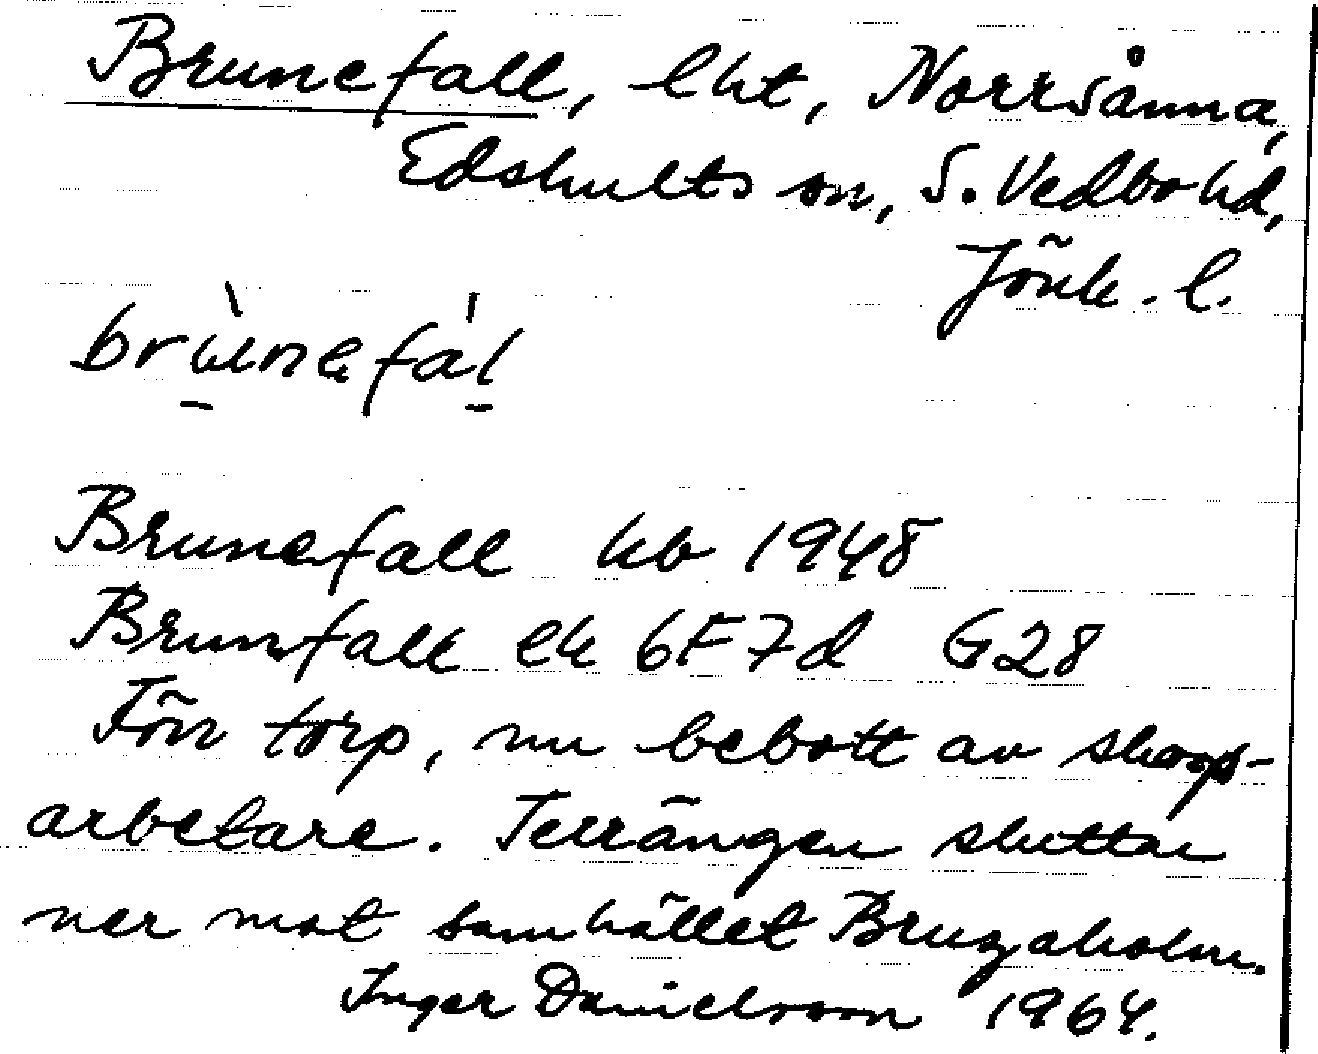 Brunefall, lht, Norrsånna,
Edshults sn, S. Vedbo hd,
Jönk. l.
brùnefál
Brunefall kb 1948
Brunefall ek 6F7d G28
Förr torp, nu bebott av skogs-
arbetare. Terrängen sluttar
ner mot samhället Bruzaholm.
Inger Danielsson 1964.